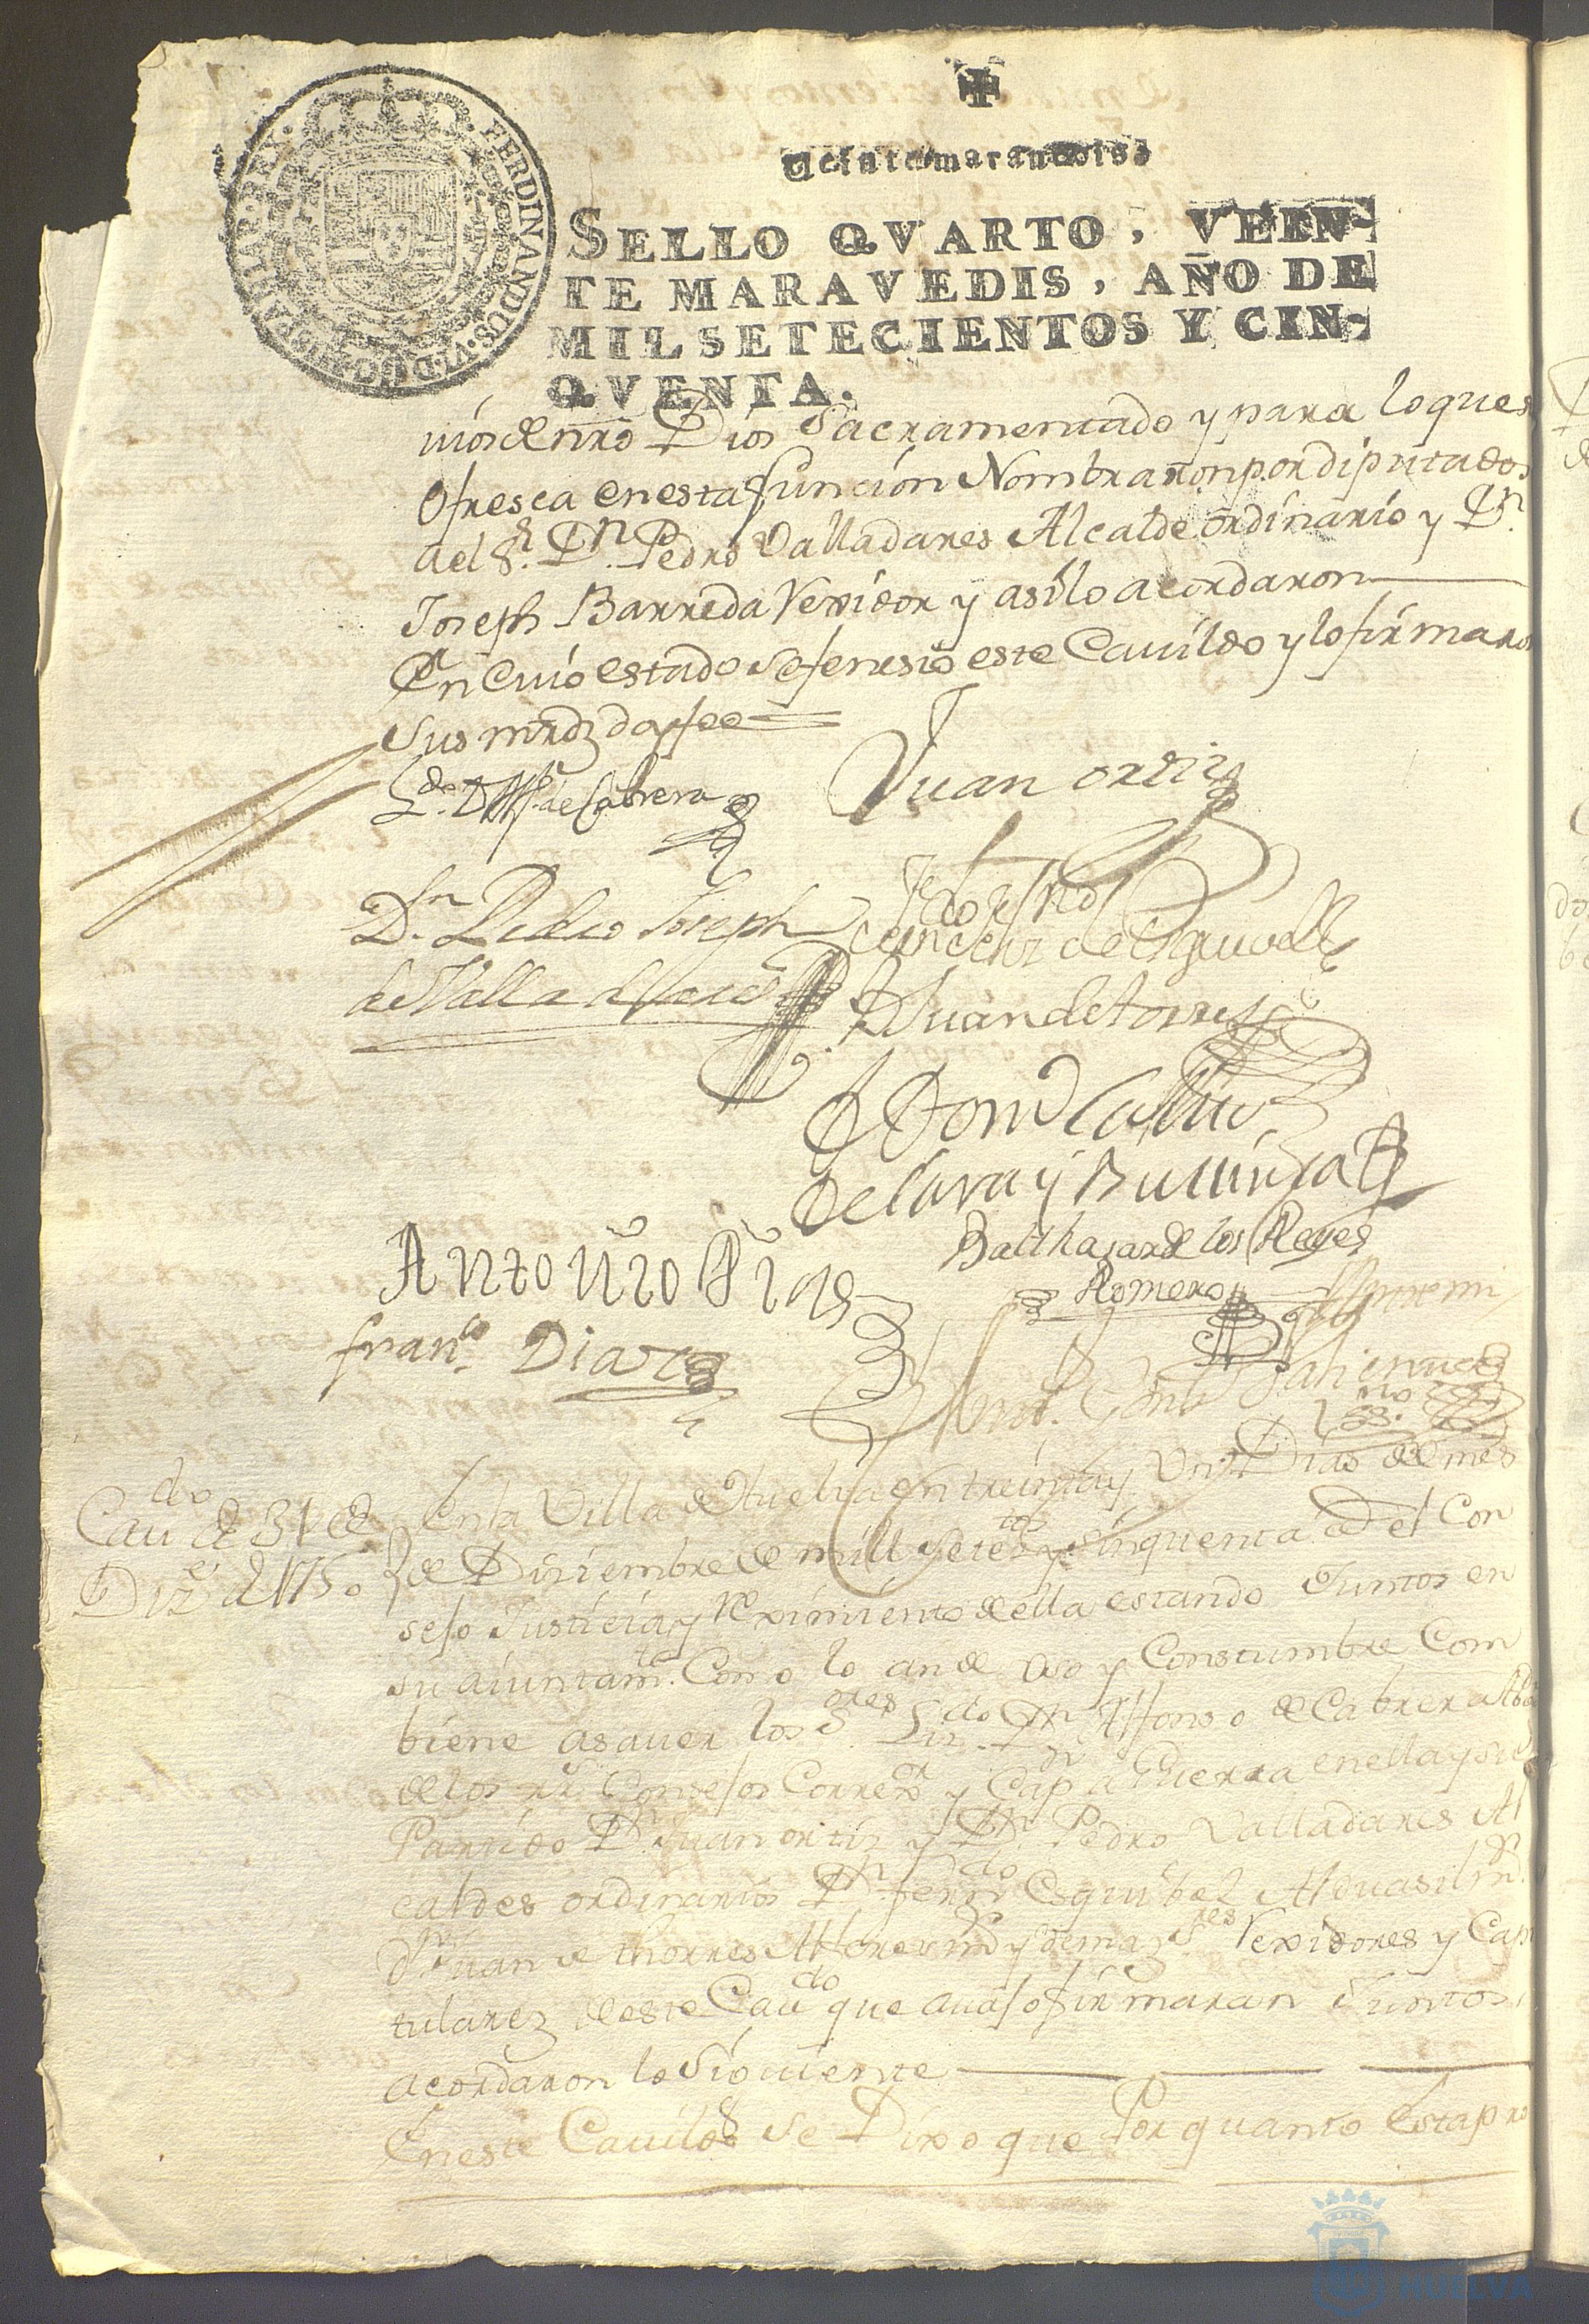 FERDINANDUS.VI.D.G.HISPANIAR.REX.
✝
Veinte maravedis.
SELLO QVARTO, VEIN-
TE MARAVEDIS, AÑO DE
MIL SETECIENTOS Y CIN-
QVENTA.
nrõ Dios Sacramentado y para lo que se
Ofresca en esta funcíon Nombraron por diputados
a el Sr. Dn. Pedro Valladares Alcalde ordinario y Dn.
Joseph Barreda Rexidor y asilo acordaron
En cuio estado se fenesio este Cavildo y lo firmaron
Sus mrdz doy fee
Ldo. D Alfo. de Cabrera
Juan ortiz
Dn. Pedro Joseph
de Valladares
de Esquivel
D Juan de torres
de Lara y
Antonio Dias
Balthasar de los Reyes
Romero
franco. Diaz
Cavdo de 31 de
Dize. de 1750
En la Villa de Huelva en treinta y Un Dias del mes
de Diziembre de mill setetos. y sinquenta a el Con
sejo Justicia y Reximiento de ella estando Juntos en
su aiuntamto. Como lo an de Uso y Constumbre Com
biene asaver los Sres Lizdo. Dn Alfonso de Cabrera Abo
de los rrs. Consejos Correxor y Capn a Guerra en ella y su
Partido Dn. Juan ortiz y Dn. Pedro Valladares Al
caldes ordinarios Dn. ferndo Esquibel Alguasil mr.
Dn Juan de thorres Alferez mr y demaz Sres Rexidores y Capi
tularez de este Cavdo que avajo firmaran Juntos
acordaron lo Siguiente
En este Cavildo se Dixo que Por quanto Esta pro
HUELVA